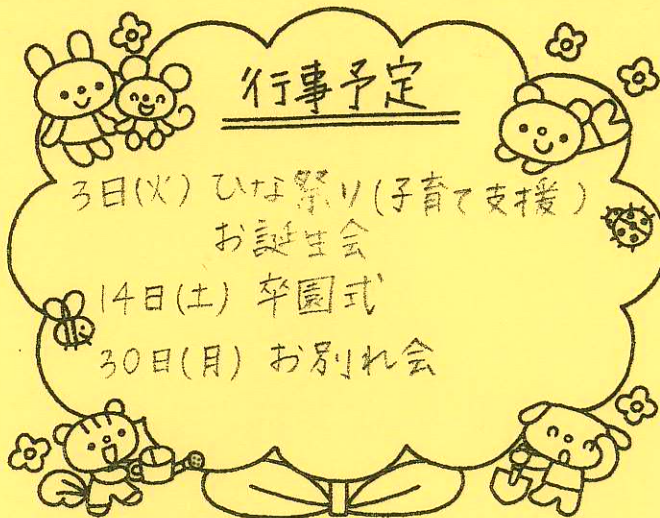 行事予定
3日(火) ひな祭り(子育て支援)
お誕生会
14日(土) 卒園式
30日(月) お別れ会